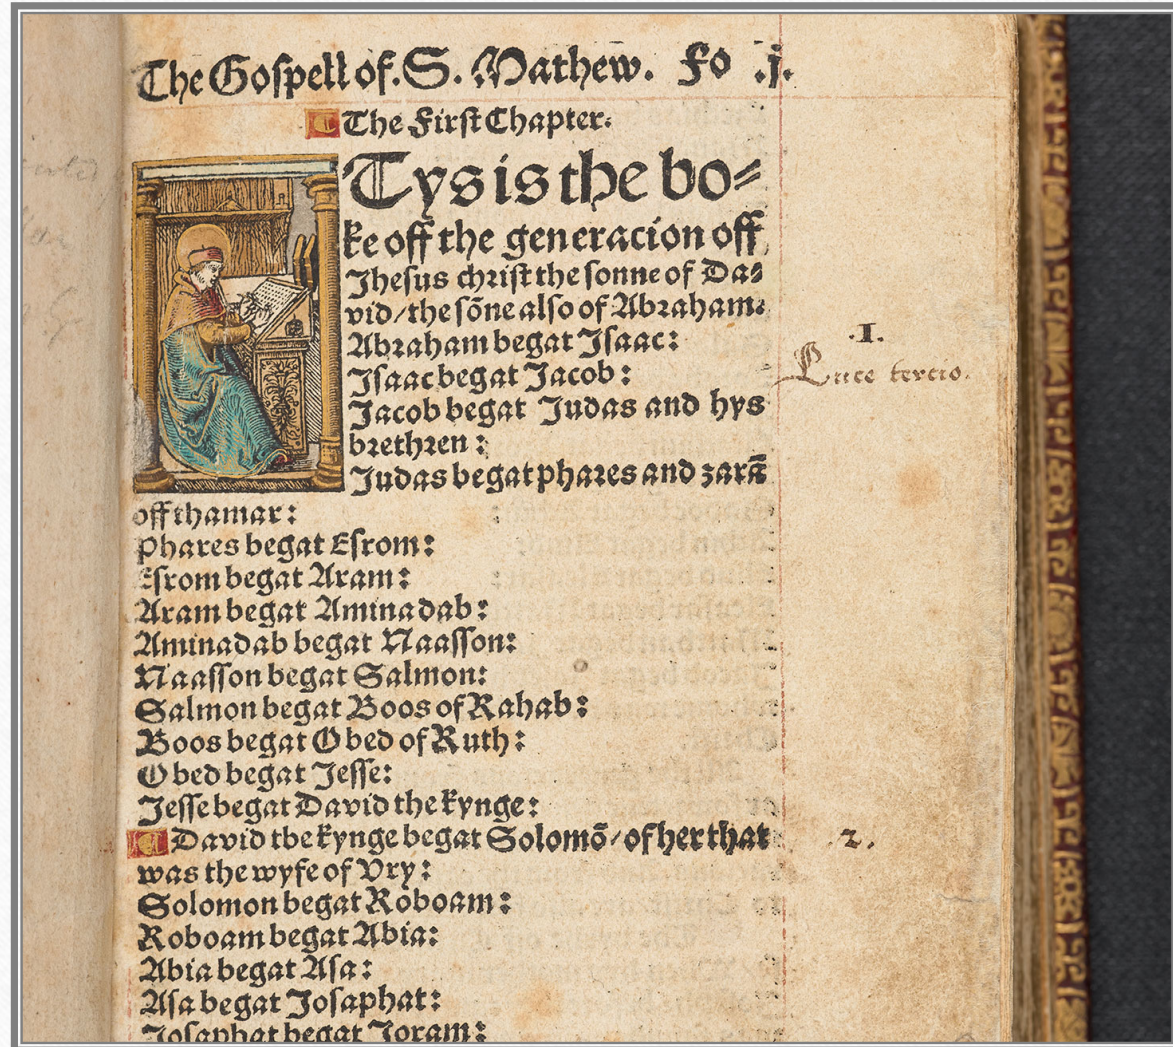 The Goſpell of .S. Mathew. Fo .j.
The Firſt Chapter.
Tys is the bo⸗
ke off the generacion off
Jheſus chriſt the ſonne of Da⸗
vid/the ſõne alſo of Abraham.
Abraham begat Iſaac:
Iſaac begat Jacob:
Jacob begat Judas and hys
brethren:
Judas begat phares and zarã
off thamar:
Phares begat Eſrom:
Eſrom begat Aram:
Aram begat Aminadab:
Aminadab begat Naaſſon:
Naaſſon begat Salmon:
Salmon begat Boos of Rahab:
Boos begat Obed of Ruth:
Obed begat Jeſſe:
Jeſſe begat David the kynge:
David the kynge begat Solomõ/of her that
was the wyfe of Vry:
Solomon begat Roboam:
Roboam begat Abia:
Abia begat Aſa:
Aſa begat Joſaphat:
Joſaphat begat Joram:
.I.
Luce tercio.
2.